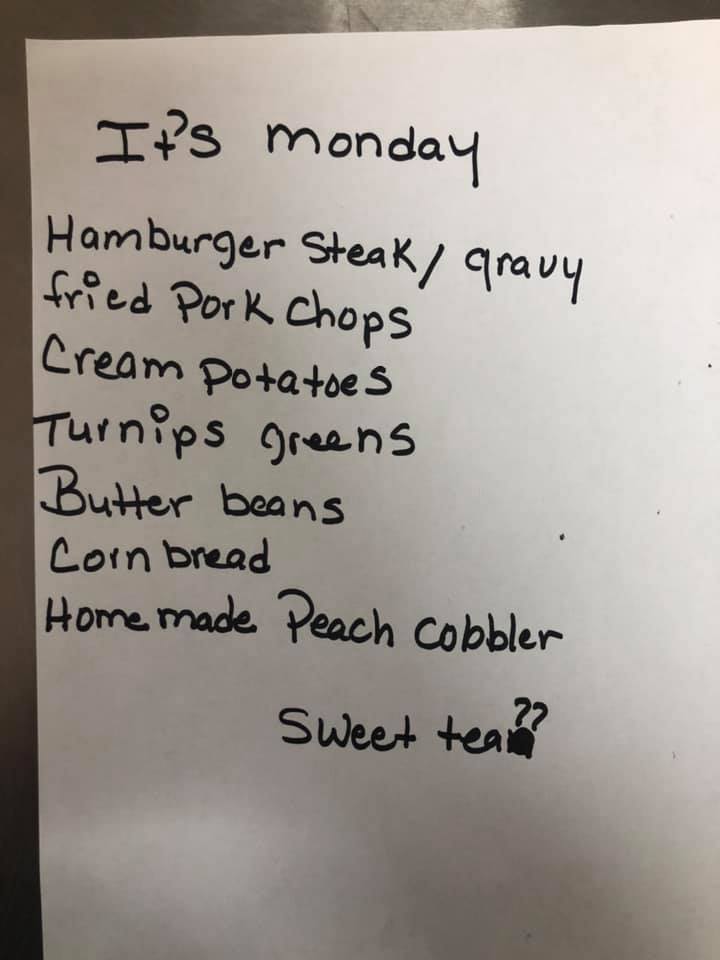 It's monday
Hamburger Steak/ gravy
fried Pork Chops
Cream Potatoes
Turnips greens
Butter beans
Corn bread
Home made Peach Cobbler
Sweet tea??